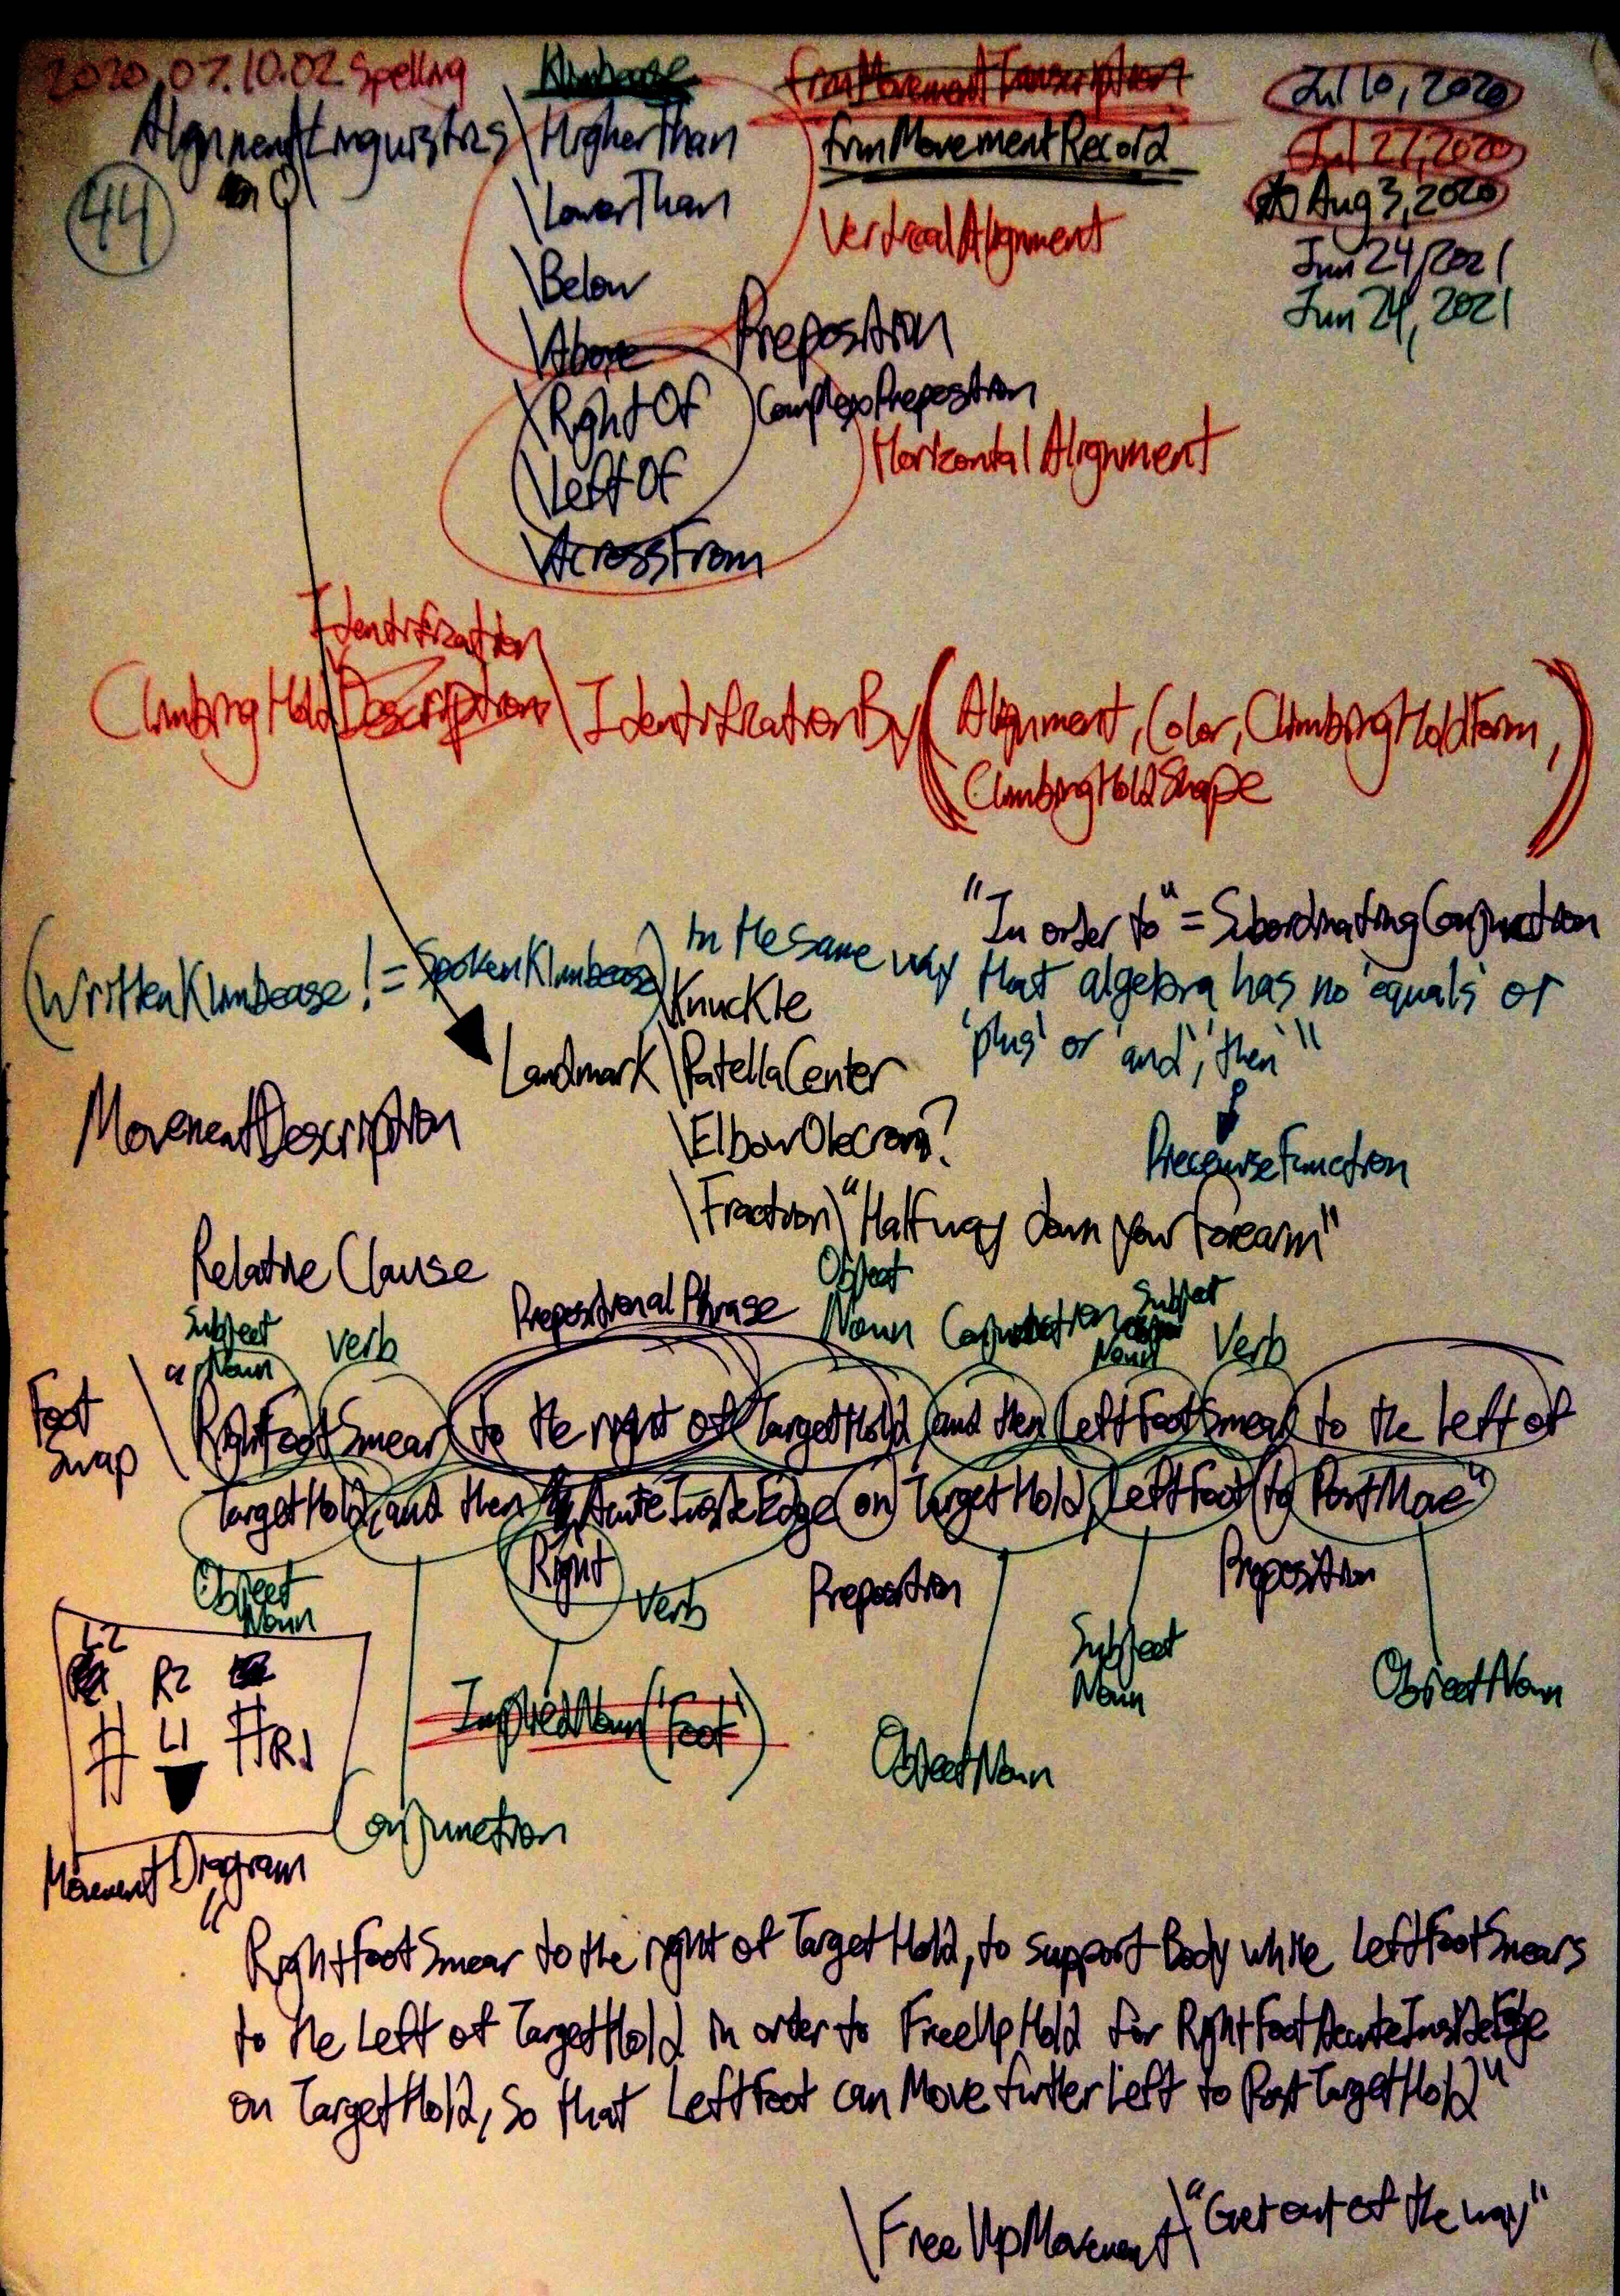 2020.07.10.02 Spelling
Klimbease
frmMovementTranscription
Jul 10, 2020
AlignmentLinguistics \HigherThan
frmMovementRecord
Jul 27, 2020
44
\LowerThan
Aug 3, 2020
VerticalAlignment
Jun 24, 2021
\Below
Jun 24, 2021
\Above
Preposition
\RightOf
ComplexPreposition
\LeftOf
HorizontalAlignment
\AcrossFrom
Identification
ClimbingHoldDescription \IdentificationBy (Alignment, Color, ClimbingHoldForm,
ClimbingHoldShape)
"In order to" = SubordinatingConjunction
(WrittenKlimbease != SpokenKlimbease) in the same way that algebra has no 'equals' or
'plus' or 'and', 'then'"
\Knuckle
Landmark \PatellaCenter
MovementDescription
\ElbowOlecron?
PrecourseFunction
\Fraction\"Halfway down your forearm"
Relative Clause
Prepositional Phrase
Object
Noun
Conjunction
Subject
Noun
Verb
Subject
Noun
Verb
Foot
Swap
\"RightFootSmear to the right of TargetHold, and then LeftFootSmear to the left of
TargetHold, and then AcuteInsideEdge on TargetHold, LeftFoot to PostMove"
Right
Object
Noun
Verb
Preposition
Preposition
L2
R2
L1
R1
Subject
Noun
ObjectNoun
ImpliedNoun('Foot')
ObjectNoun
Conjunction
MovementDiagram
"RightFootSmear to the right of TargetHold, to support Body while LeftFootSmears
to the Left of TargetHold in order to FreeUpHold for RightFootAcuteInsideEdge
on TargetHold, so that LeftFoot can Move further Left to PostTargetHold"
\FreeUpMovement\"Get out of the way"